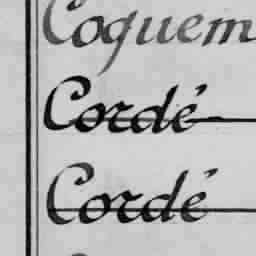 Coquem
Cordé
Cordé